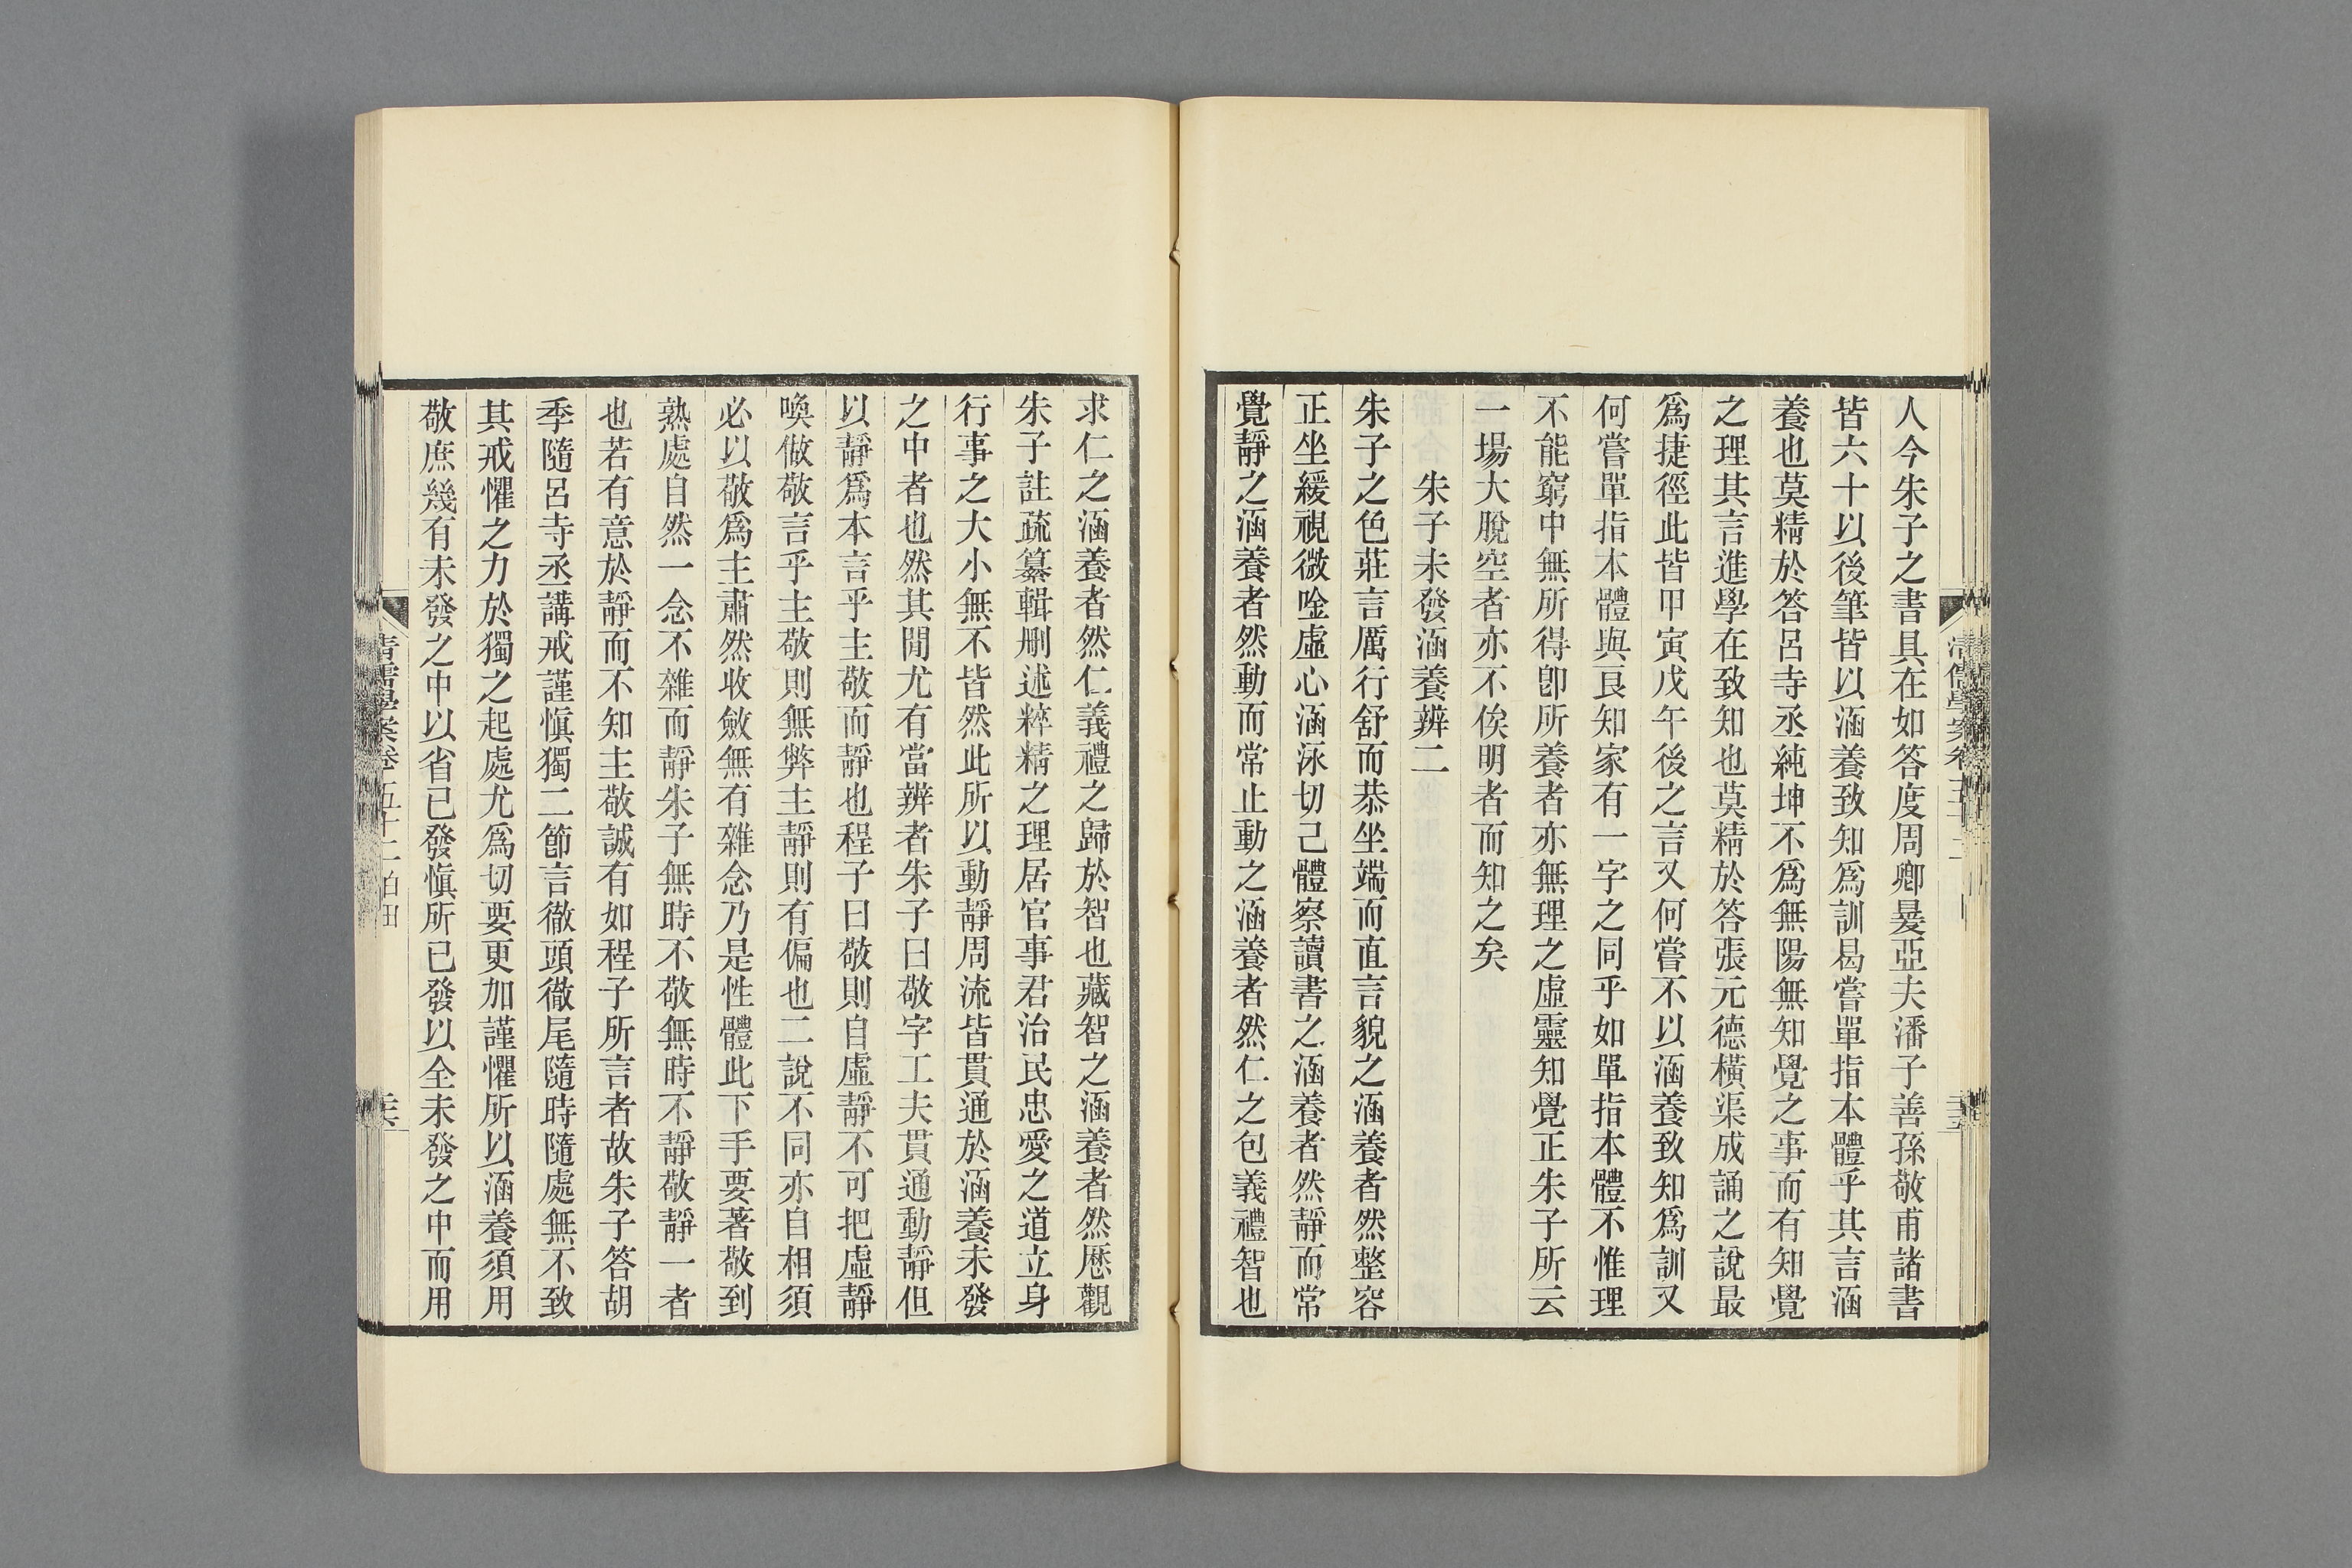 人今朱子之書具在如答度周卿㬊亞夫潘子善孫敬甫諸書
皆六十以後筆皆以涵養致知爲訓曷嘗單指本體乎其言涵
養也莫精於答呂寺丞純坤不爲無陽無知覺之事而有知覺
之理其言進學在致知也莫精於答張元德橫渠成誦之說最
爲捷徑此皆甲寅戊午後之言又何嘗不以涵養致知爲訓又
何嘗單指本體與良知家有一字之同乎如單指本體不惟理
不能窮中無所得卽所養者亦無理之虛靈知覺正朱子所云
一場大脫空者亦不俟明者而知之矣
朱子未發涵養辨二
朱子之色莊言厲行舒而恭坐端而直言貌之涵養者然整容
正坐緩視微唫虛心涵泳切己體察讀書之涵養者然靜而常
覺靜之涵養者然動而常止動之涵養者然仁之包義禮智也
求仁之涵養者然仁義禮之歸於智也藏智之涵養者然歷觀
朱子註疏纂輯刪述粹精之理居官事君治民忠愛之道立身
行事之大小無不皆然此所以動靜周流皆貫通於涵養未發
之中者也然其閒尤有當辨者朱子曰敬字工夫貫通動靜但
以靜爲本言乎主敬而靜也程子曰敬則自虛靜不可把虛靜
喚做敬言乎主敬則無弊主靜則有偏也二說不同亦自相須
必以敬爲主肅然收斂無有雜念乃是性體此下手要著敬到
熟處自然一念不雜而靜朱子無時不敬無時不靜敬靜一者
也若有意於靜而不知主敬誠有如程子所言者故朱子答胡
季隨呂寺丞講戒謹愼獨二節言徹頭徹尾隨時隨處無不致
其戒懼之力於獨之起處尤爲切要更加謹懼所以涵養須用
敬庶幾有未發之中以省已發愼所已發以全未發之中而用
清儒學案卷五十二 白田